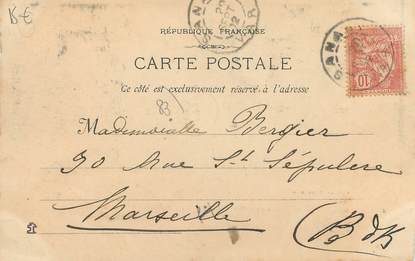 8€
RÉPUBLIQUE FRANÇAISE
CARTE POSTALE
Ce côté est exclusivement réservé à l'adresse
Mademoiselle Bergier
90 Rue St Sépulcre
Marseille
(B d R)
10